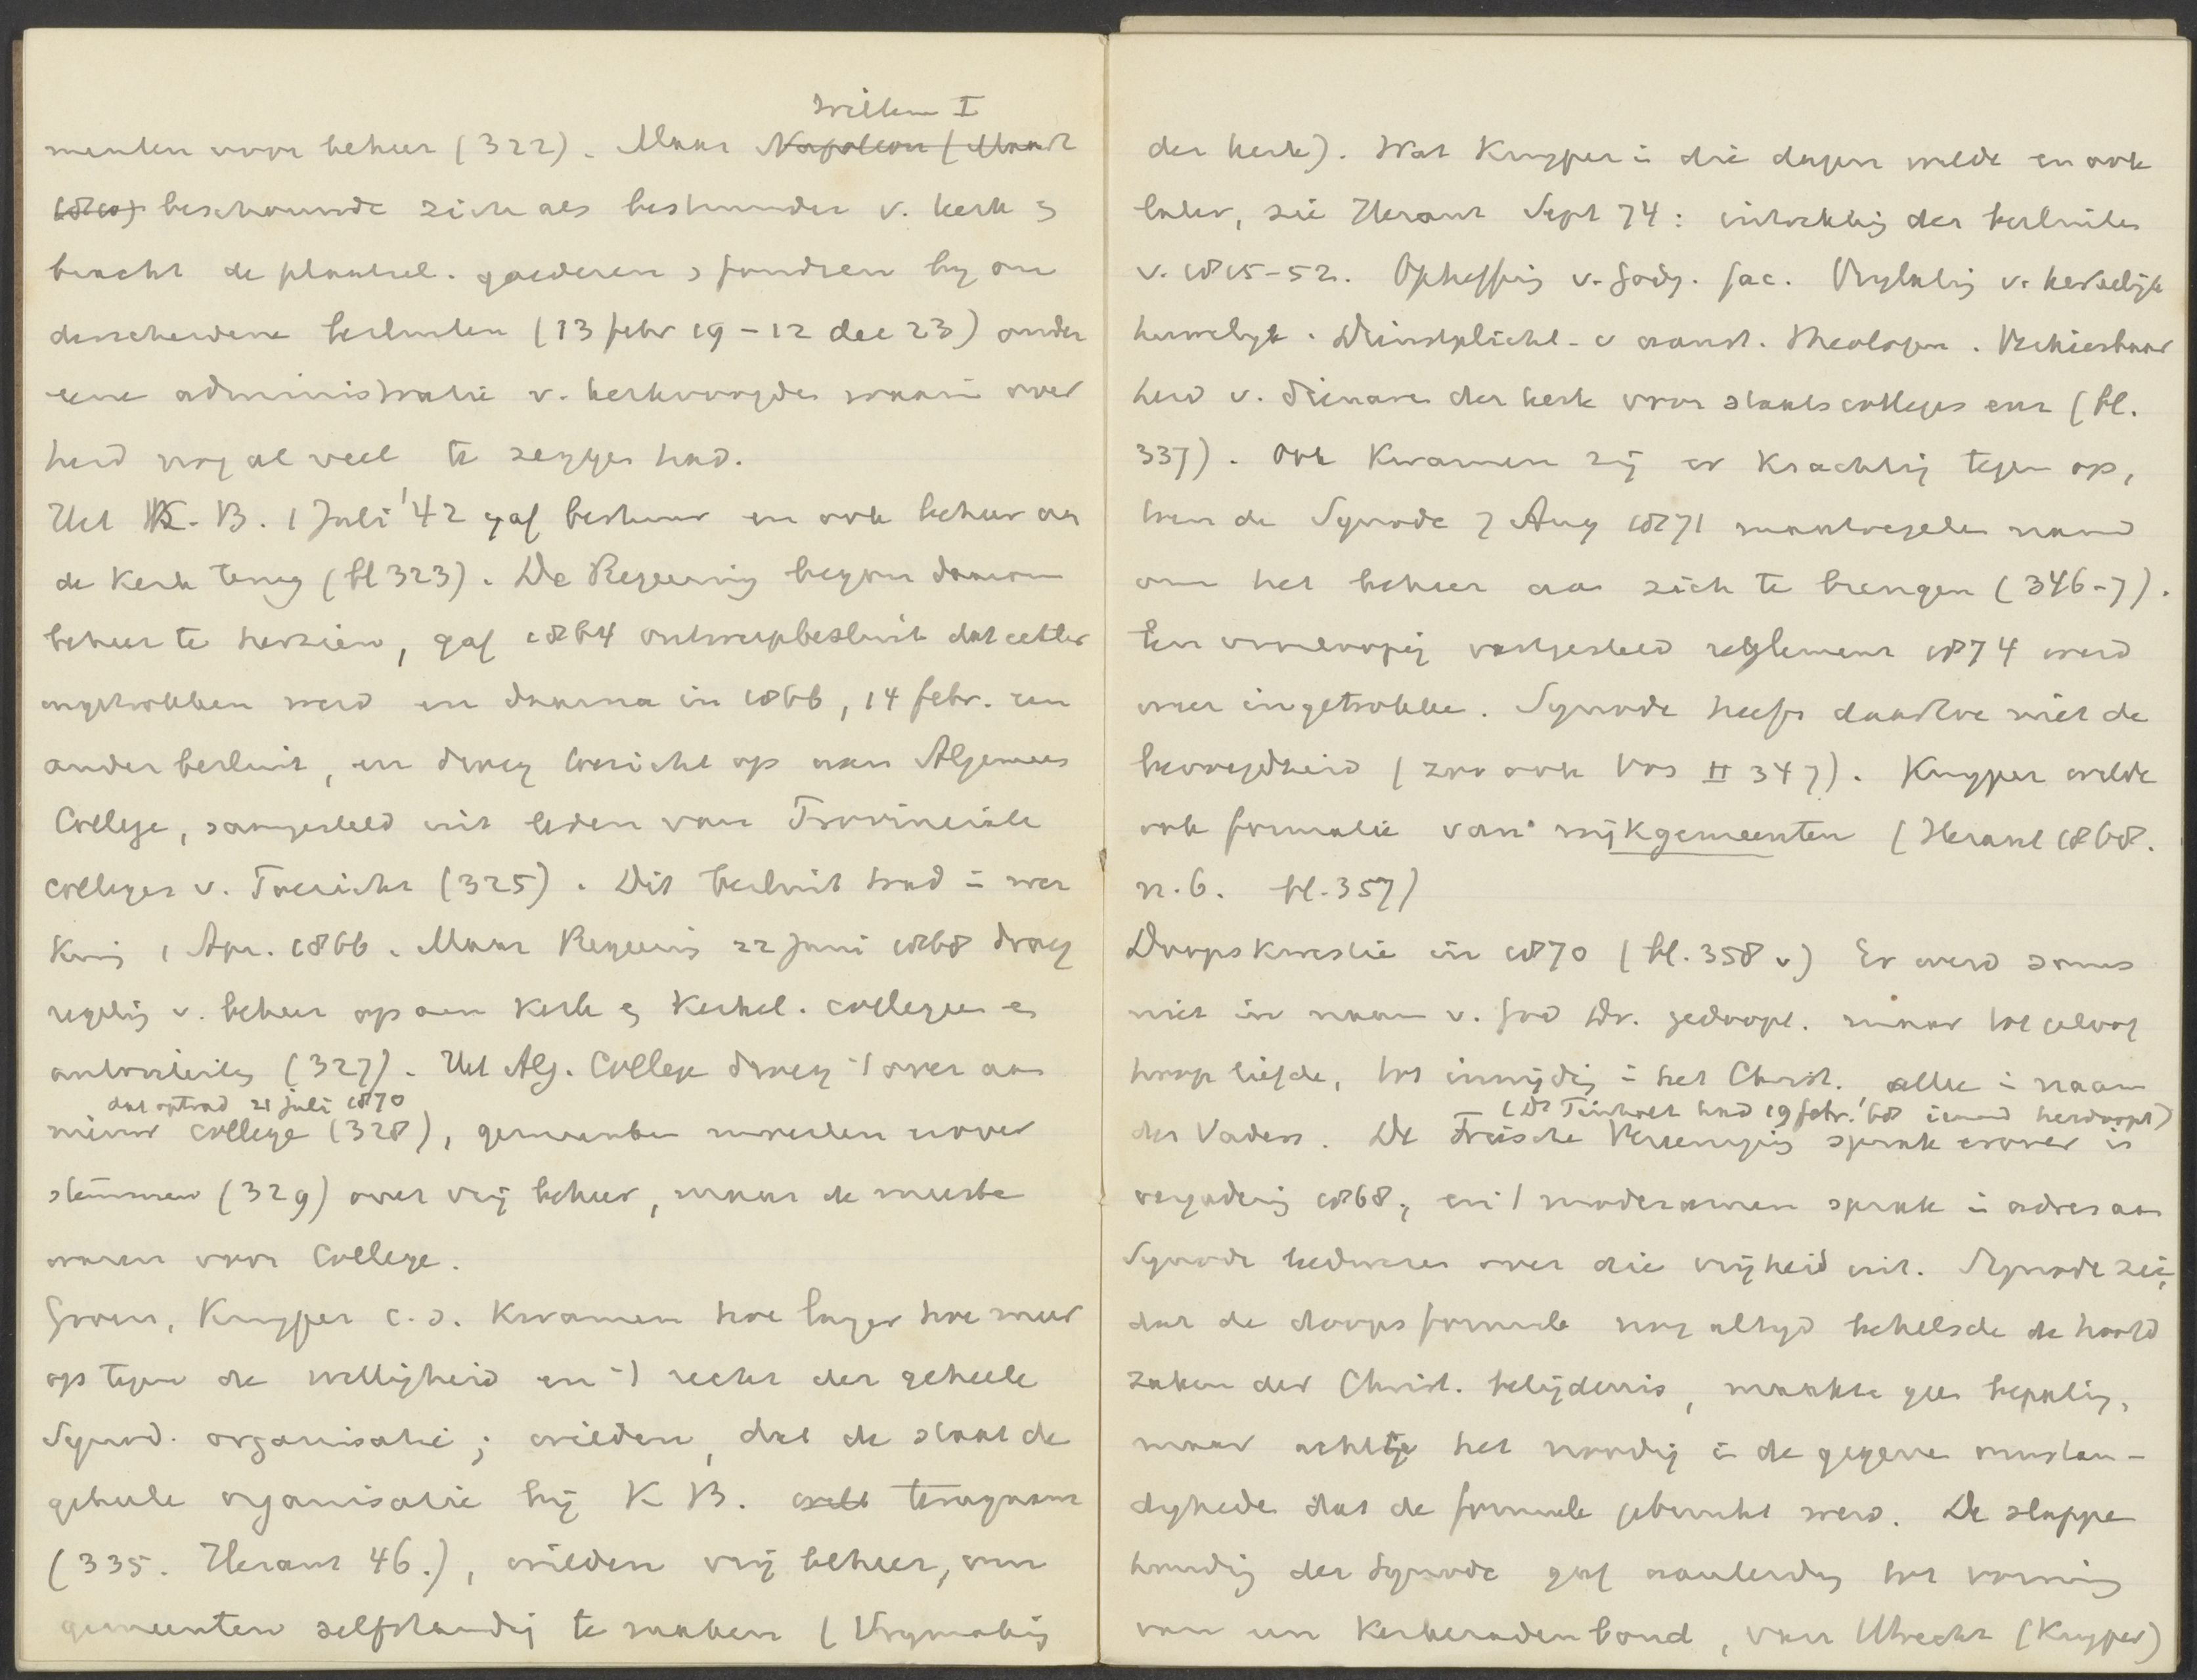 Willem I
menten voor beheer (322). Maar Napoleon (Maart
1810) beschouwde zich als bestuurder v. kerk en
bracht de plaatsel. goederen en fondsen by on
derscheidene besluiten (13 febr 19 - 12 dec 23) onder
eene administratie v. kerkvoogden waarin over
heid nog al veel te zeggen had.
Het K.B. 1 Juli '42 gaf bestuur en ook beheer aan
de Kerk terug (bl 323). De Regeering begon daarom
beheer te herzien, gaf 1864 ontwerpbesluit dat echter
ingetrokken werd en daarna in 1866, 14 febr. een
ander besluit, en droeg toezicht op aan Algemeen
College, saamgesteld uit leden van Provinciale
colleges v. Toezicht (325). Dit besluit trad in wer
king 1 Apr. 1866. Maar Regeering 22 Juni 1868 droeg
regeling v. beheer op aan Kerk en Kerkel. collegien en
autoriteiten (327). Het Alg. College droeg 't over aan
dat optrad 21 juli 1870
nieuw college (328), gemeenten moesten nover
stemmen (329) over vrij beheer, maar de meeste
waren voor College.
Groen, Kuyper c.s. Kwamen hoe langer hoe meer
op tegen de wettigheid en 't recht der geheele
Synod. organisatie; wilden, dat de staat de
geheele organisatie bij K B. terugnam
(335. Heraut 46.), wilden vrij beheer, om
gemeenten zelfstandig te maken (Vrymaking
der kerk). Wat Kuyper in die dagen wilde en ook
later, zie Heraut Sept 74: intrekking der besluiten
v. 1815-52. Opheffing v. godg. fac. Vrylating v. kerkelijk
huwelyk. Dienstplicht v aanst. theologen. Verkiesbaar
heid v. dienaren der kerk voor staatscolleges enz (bl.
337). Ook Kwamen zij er Krachtig tegen op,
toen de Synode 7 Aug 1871 maatregelen nam
om het beheer aan zich te brengen (346-7).
Een voorloopig vastgesteld reglement 1874 werd
weer ingetrokken. Synode heeft daartoe niet de
bevoegdheid (zoo ook Vos II 347). Kuyper wilde
ook formatie van wijkgemeenten (Heraut 1868.
n.6. bl.357)
Doopskwestie in 1870 (bl. 358 v) Er werd soms
niet in naam v. God Dr. gedoopt. maar tot geloof
hoop liefde, tot inwijding in het Christ. alleen in naam
(Ds had 19 febr. '68 iemand herdoopt)
des Vaders. De Friesche Vereeniging sprak erover in
vergadering 1868, en 't moderamen sprak in adres aan
Synode bedwares over die vrijheid uit. Synode zei,
dat de doopsformule nog altyd behelsde de hoofd
zaken der Christ. belijdenis, maakte geen bepaling,
maar achtte het noodig in de gegeven omstan-
digheden dat de formule gebruikt werd. De slappe
houding der Synode gaf aanleiding tot vorming
van een Kerkeradenbond, van Utrecht (Kuyper)